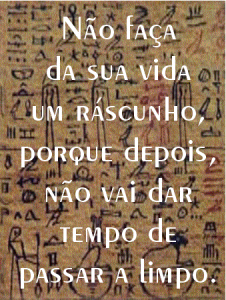 Não faça
da sua vida
um ráscunho,
porque depois,
não vai dar
tempo de
passar a limpo.